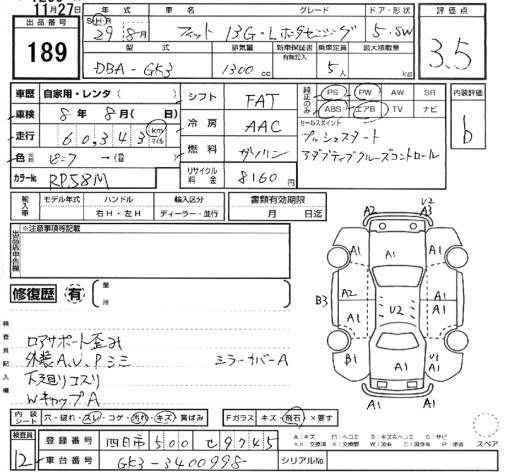 11月27日
出品番号
189
年式 H29 8月
フィット 13G・Lホンダセンシング
グレード
ドア・形状 5.SW
評価点
3.5
型式 DBA-GK3
排気量 1300cc
新車保証書 有無記入
乗車定員 5人
最大積載量 kg
車歴 自家用・レンタ( )
車検 8年 8月( 日)
走行 60,343 km マイル
色
カラーNo. RP58M
シフト FAT
冷房 AAC
燃料 ガソリン
リサイクル料金 8160円
純正のみ PS PW AW SR
ABS エアB TV ナビ
セールスポイント
プッシュスタート
アダプティブクルーズコントロール
内装評価
b
輸入車 モデル年式 ハンドル 輸入区分
右H・左H ディーラー・並行
書類有効期限
月 日迄
出品店申告欄 ※注意事項等記載
修復歴 有 箇所
検査員記入欄
ロアサポート歪み
外装A.U.Pシミ ミラーカバーA
下廻りコスリ
WキャップA
A2 U2 A3
A1 A1 A1
B3 A2 U2 A1
A1 A1
B1 A1 U1 A1
A2
内装シート 穴・破れ・スレ・コゲ・汚れ・キズ・黄ばみ
Fガラス キズ・飛石・×要す
A:キズ U:凹ミ B:キズ&凹ミ S:サビ
スペア
検査員 12
登録番号 四日市 500 せ 9745
車台番号 GK3-3400998
シリアルNo.